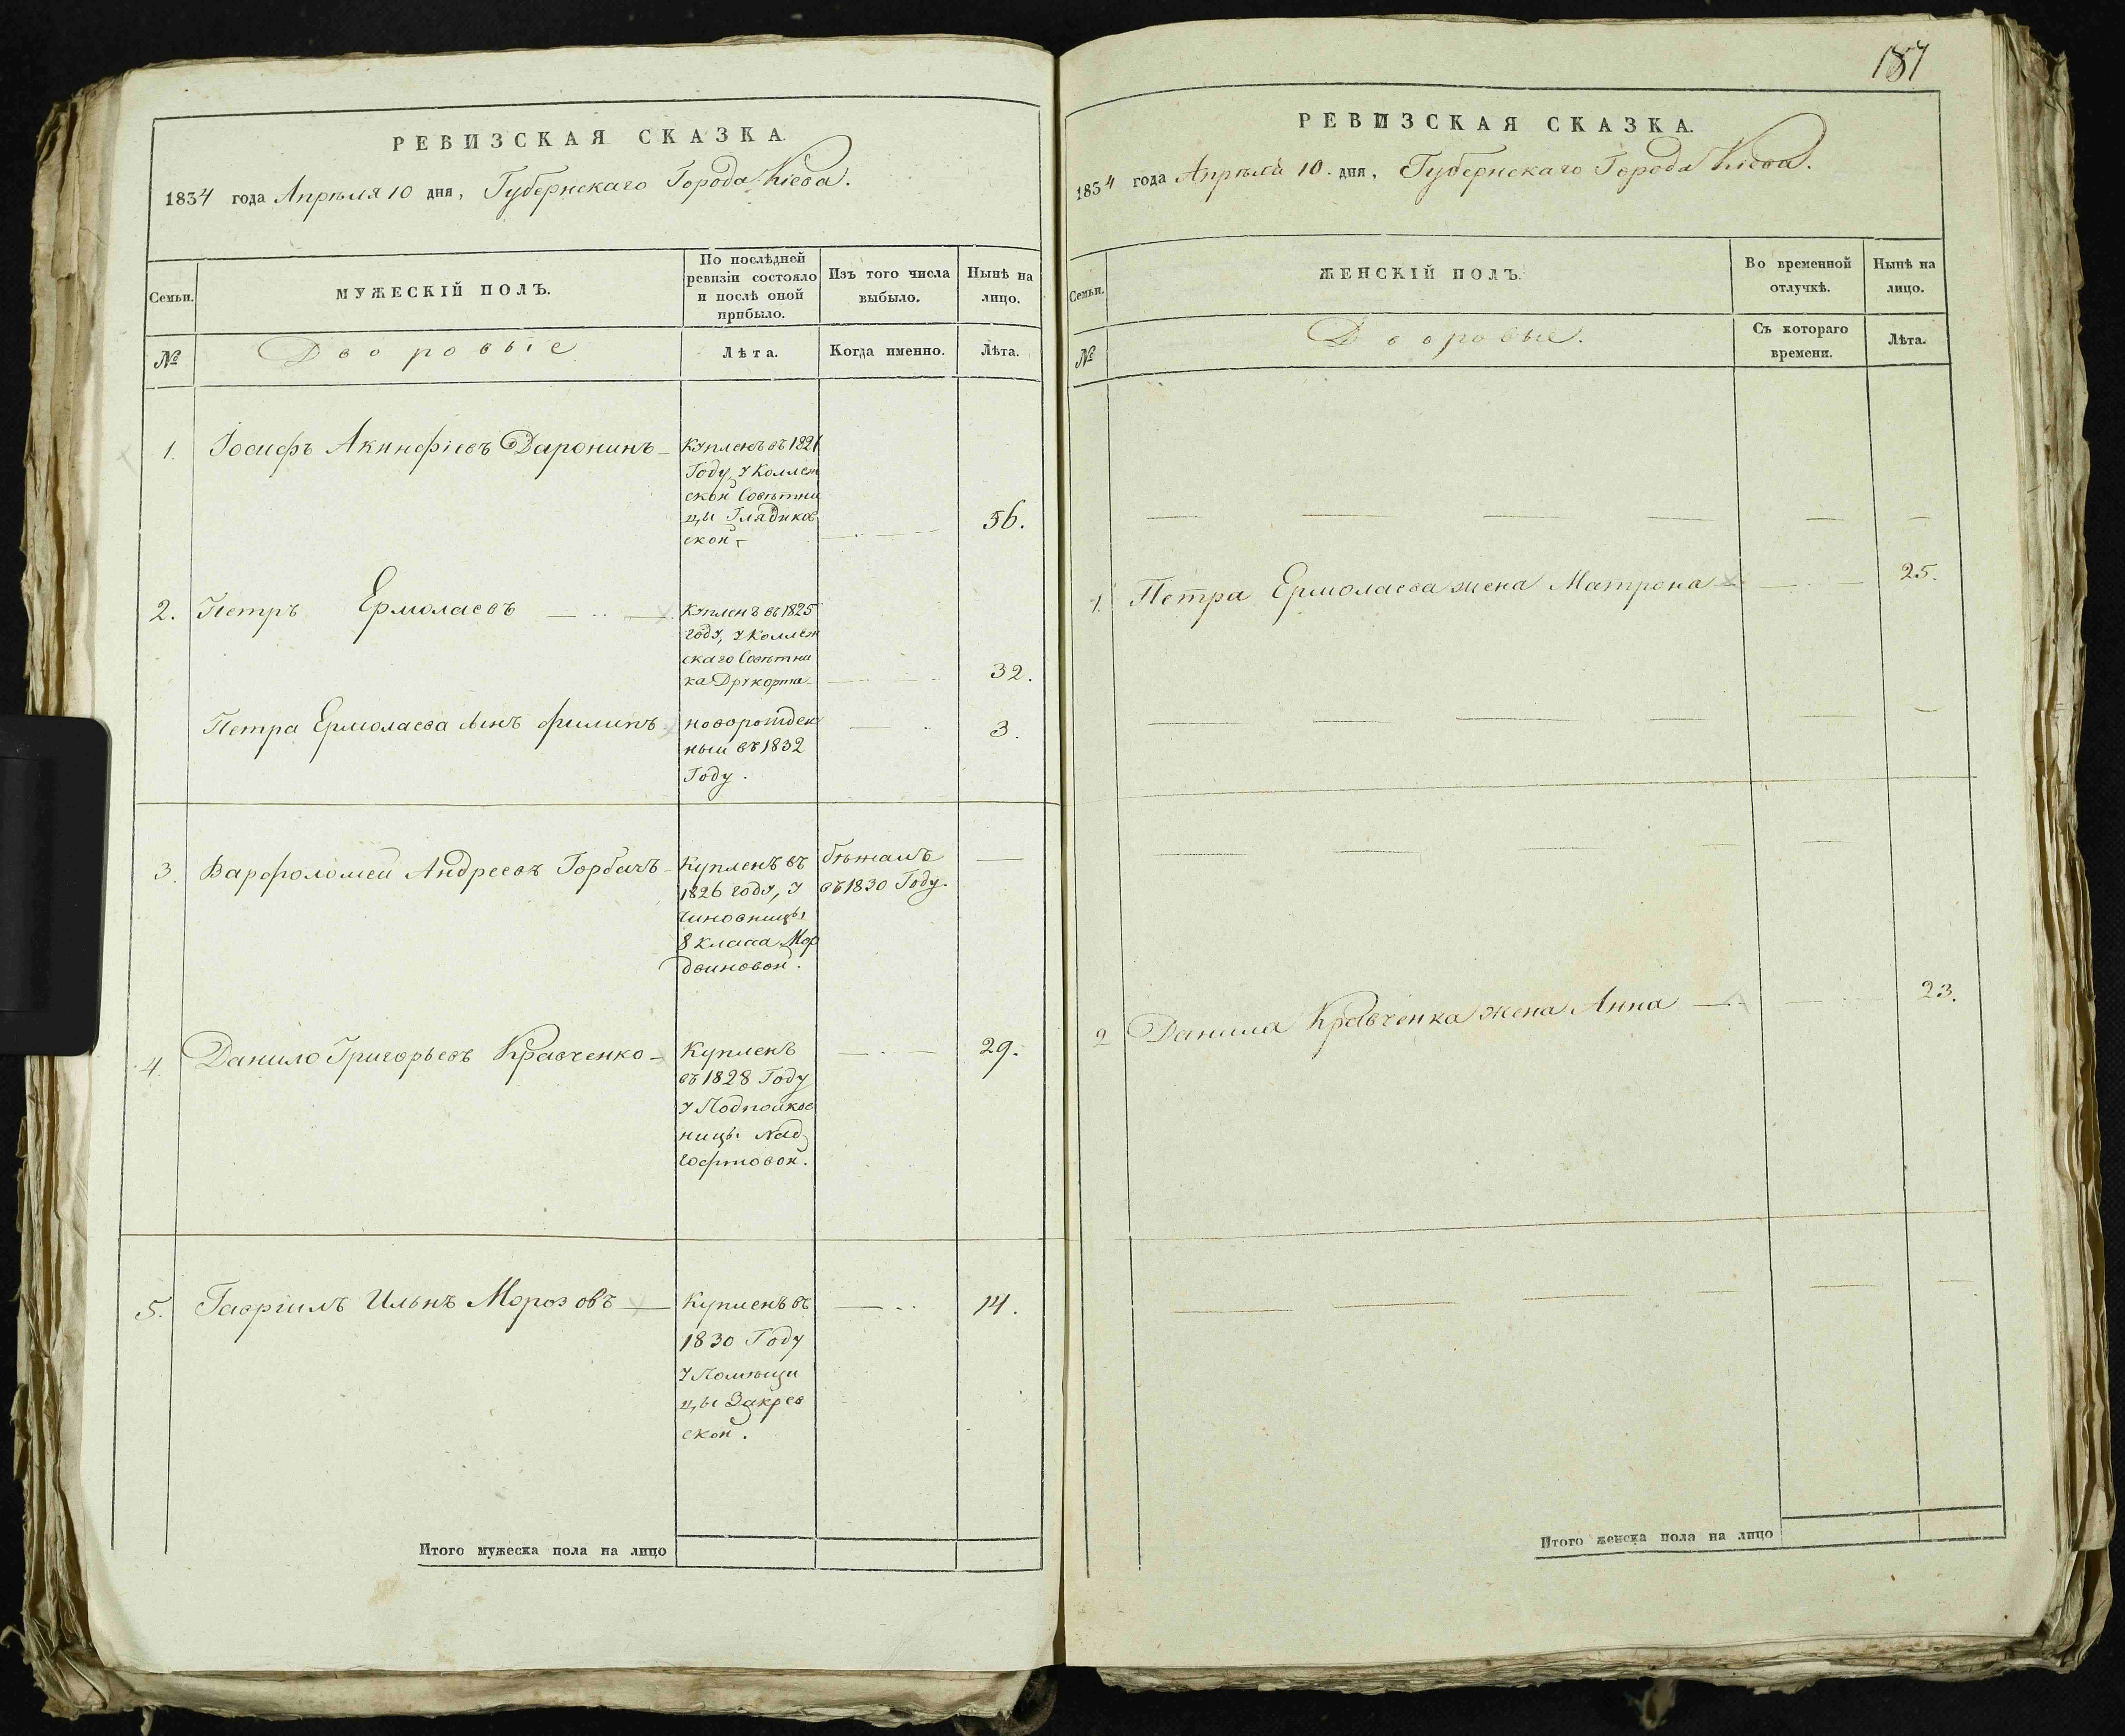 РЕВИЗСКАЯ СКАЗКА.
1834 года Апрѣля 10 дня, Губернскаго Города Кіева.
Семьи.
МУЖЕСКІЙ ПОЛЪ.
По послѣдней
ревизіи состояло
и послѣ оной
прибыло.
Изъ того числа
выбыло.
Нынѣ на
лицо.
№
Дворовые
Лѣта.
Когда именно.
Лѣта.
1. Іосифъ Акинфіевъ Даронинъ
Купленъ въ 1821
Году, у Коллеж
ской Совѣтни
цы Глядиков
ской
56.
2. Петръ Ермолаевъ
Купленъ въ 1825
году, у Коллеж
скаго Совѣтни
ка Друкорта
32.
Петра Ермолаева сынъ Филипъ
новорожден
ный въ 1832
Году.
3.
3. Варфоломей Андреевъ Горбачъ
Купленъ въ
1826 году, у
Чиновницы
8 класса Мор
двиновой.
бѣжалъ
въ 1830 Году.
4. Данило Григорьевъ Кравченко
Купленъ
въ 1828 Году
у Подполков
ницы
29.
5. Гавріилъ Ильинъ Морозовъ
Купленъ въ
1830 Году
у Помѣщи
цы Закрев
ской.
14.
Итого мужеска пола на лицо
187
РЕВИЗСКАЯ СКАЗКА.
1834 года Апрѣля 10. дня, Губернскаго Города Кіева.
Семьи.
ЖЕНСКІЙ ПОЛЪ.
Во временной
отлучкѣ.
Нынѣ на
лицо.
№
Дворовые.
Съ котораго
времени.
Лѣта.
1. Петра Ермолаева жена Матрона
25.
2 Данила Кравченка жена Анна
23.
Итого женска пола на лицо